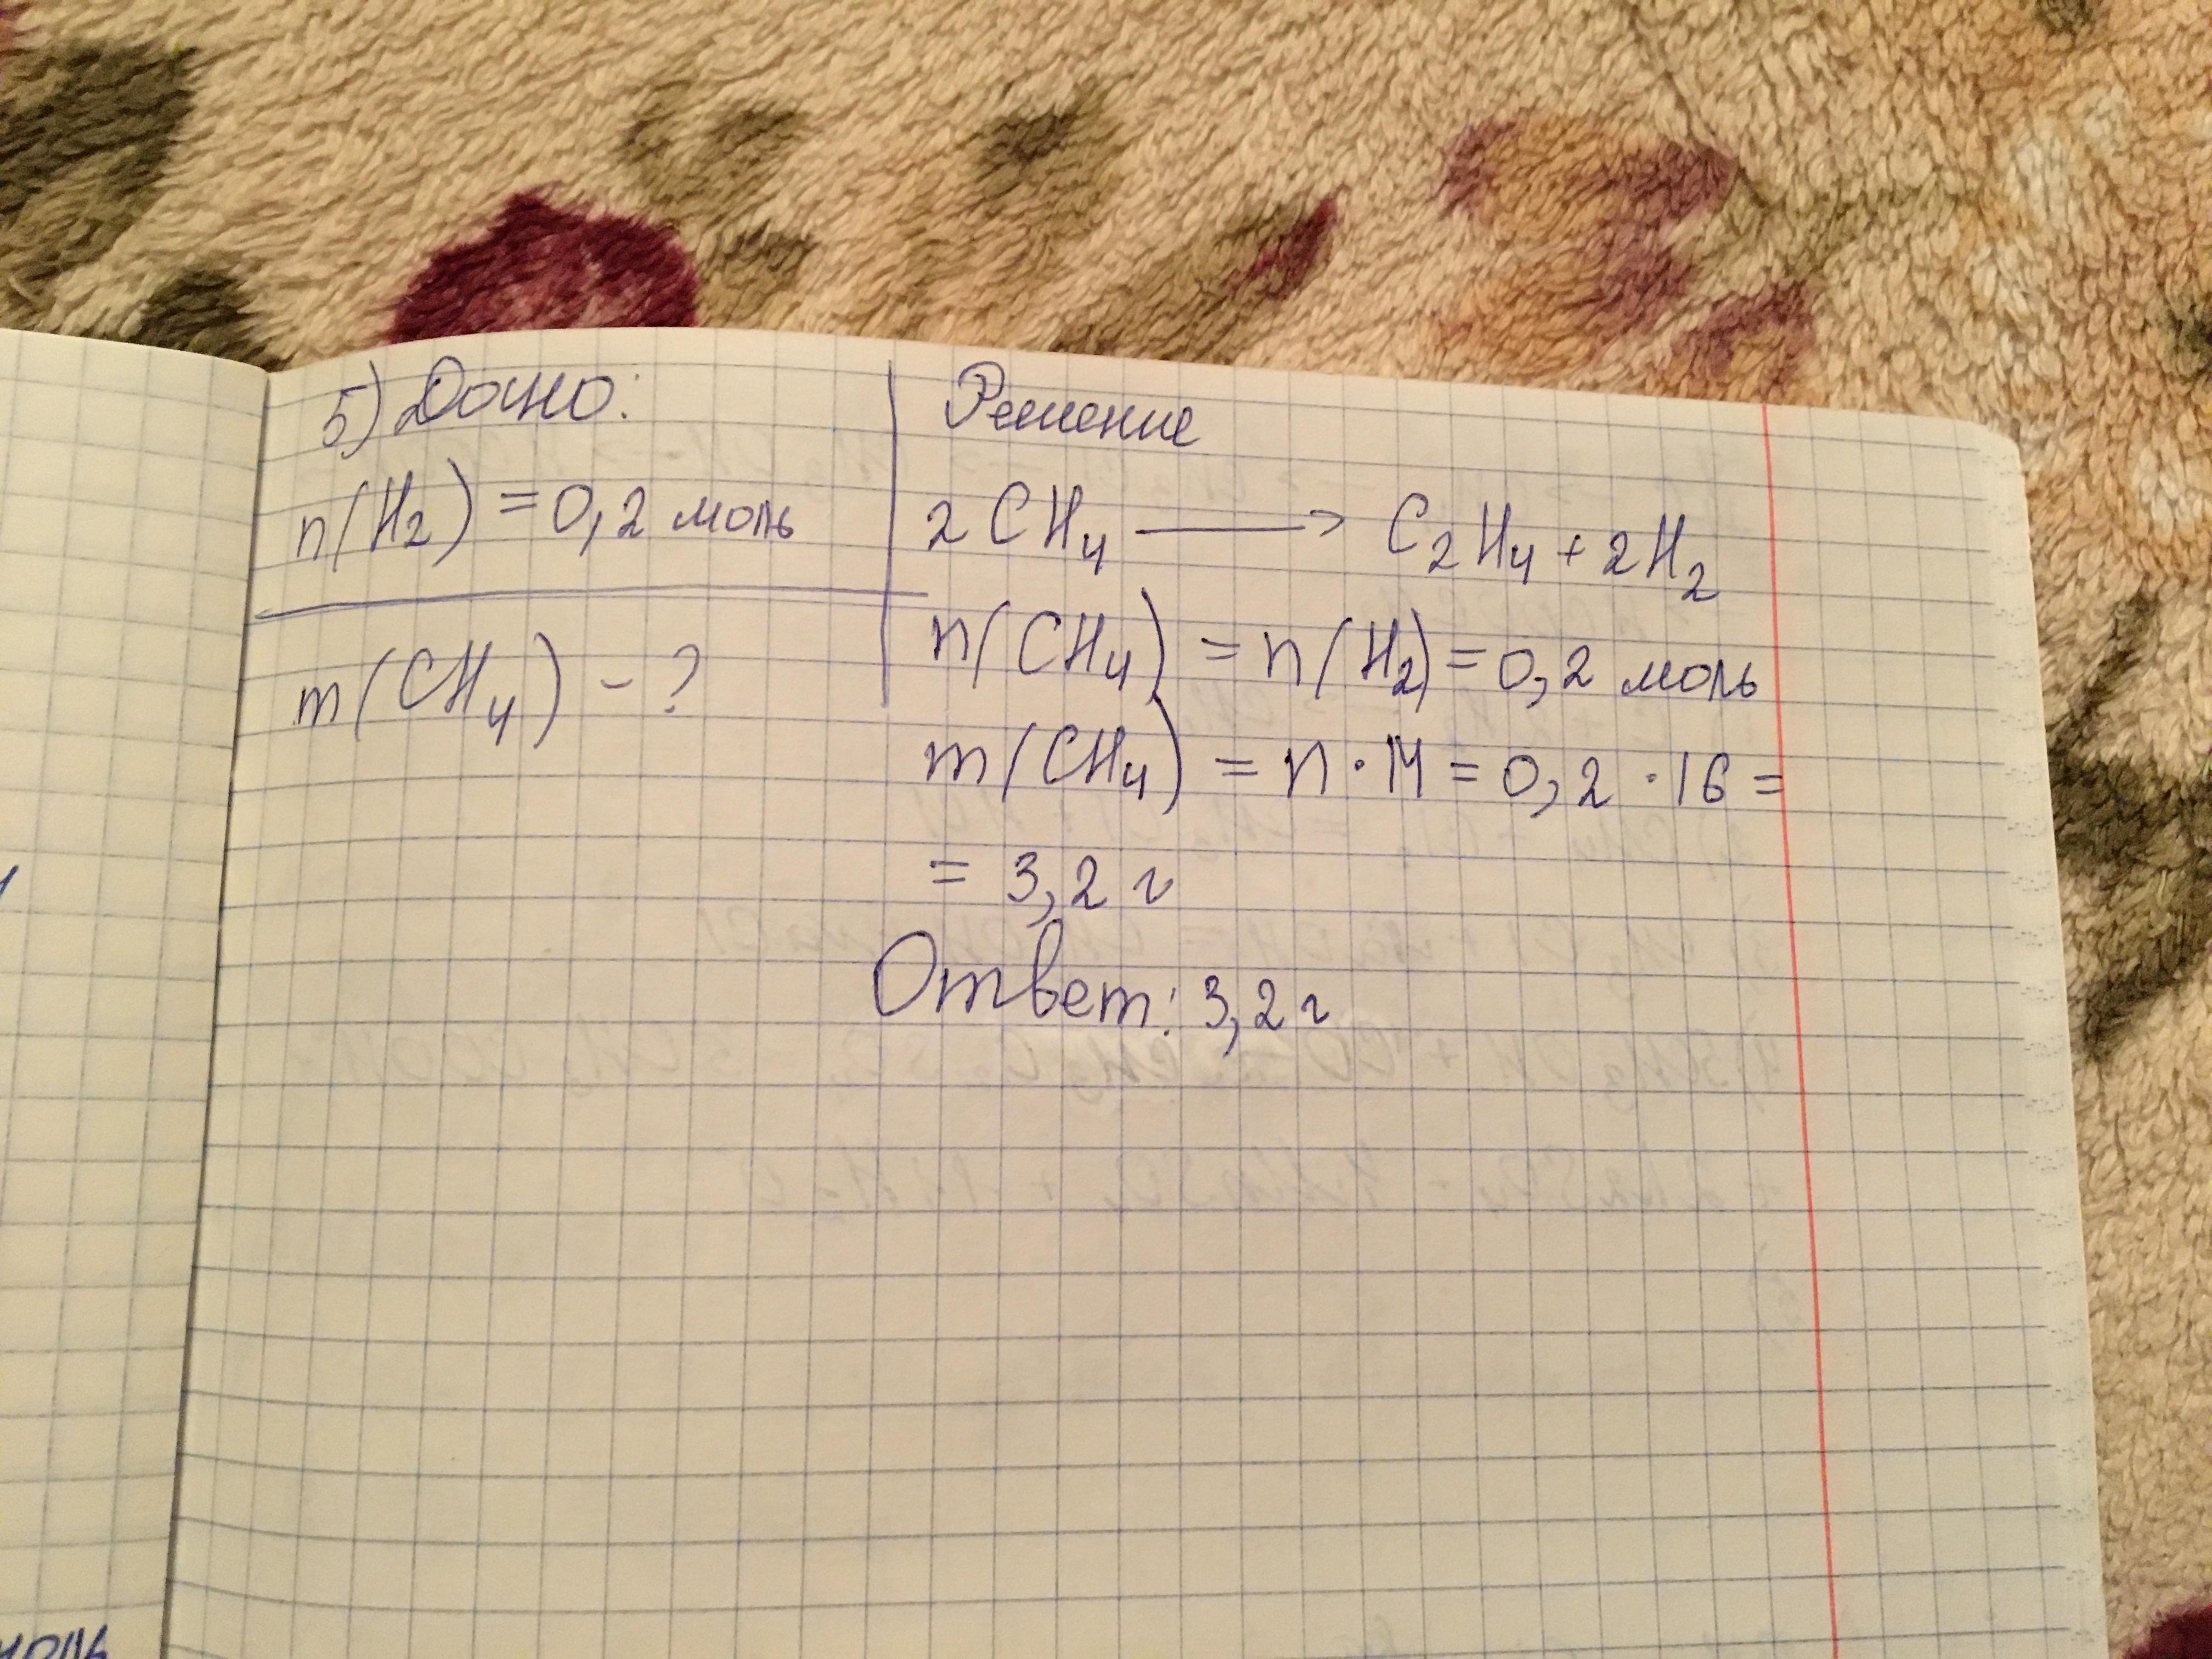 5) Дано:
n(H₂) = 0,2 моль
m(CH₄) - ?
Решение
2CH₄ → C₂H₄ + 2H₂
n(CH₄) = n(H₂) = 0,2 моль
m(CH₄) = n · M = 0,2 · 16 =
= 3,2 г
Ответ: 3,2 г
моль